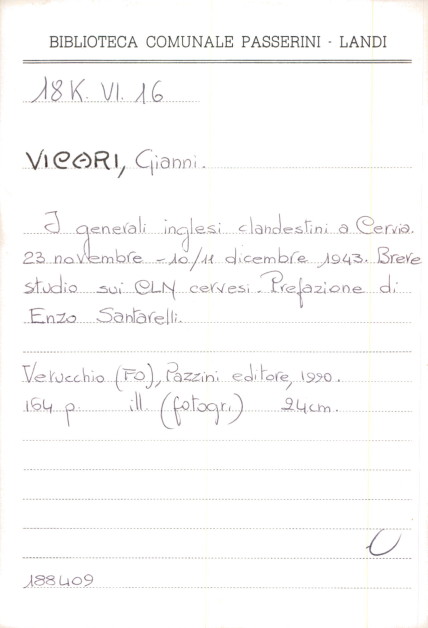 BIBLIOTECA COMUNALE PASSERINI - LANDI
18K. VI. 16
VICARI, Gianni.
I generali inglesi clandestini a Cervia.
23 novembre - 10/11 dicembre 1943. Breve
studio sui CLN cervesi. Prefazione di
Enzo Santarelli.
Verucchio (FO), Pazzini editore, 1990.
164 p. ill. (fotogr.) 24cm.
188409